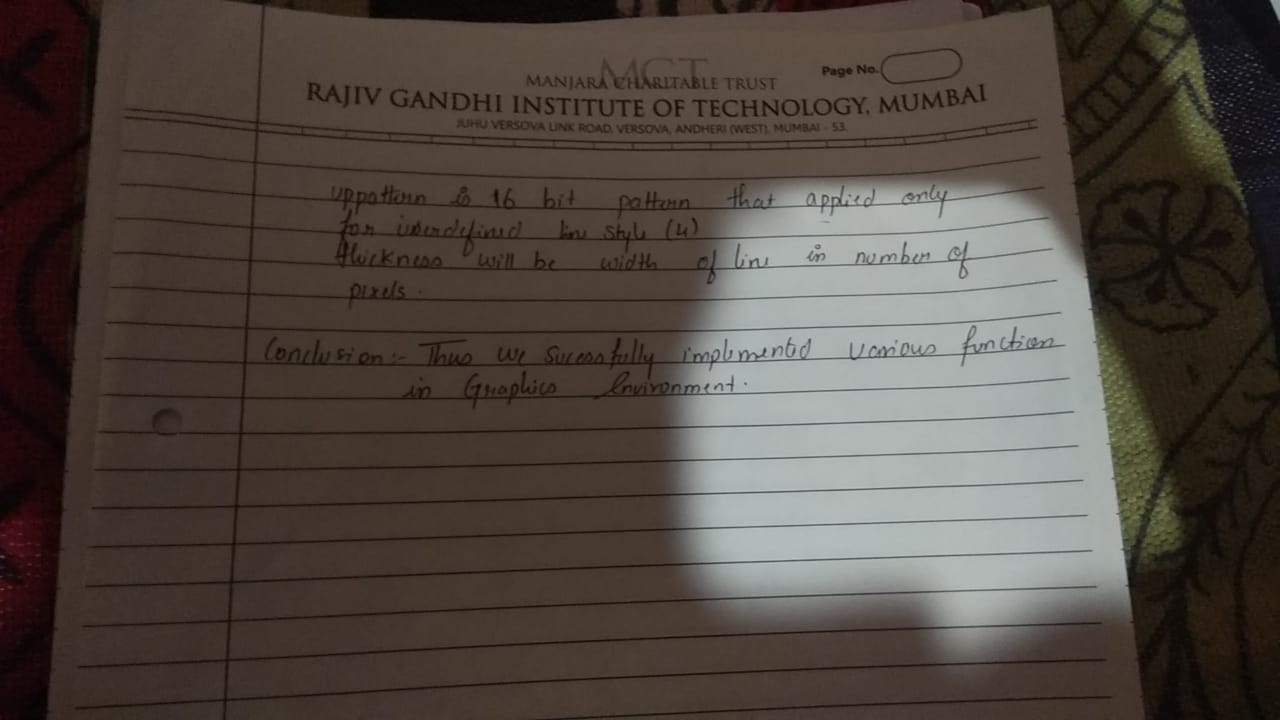 MCT
MANJARA CHARITABLE TRUST
Page No.
RAJIV GANDHI INSTITUTE OF TECHNOLOGY, MUMBAI
JUHU VERSOVA LINK ROAD, VERSOVA, ANDHERI (WEST), MUMBAI - 53.
uppattern is 16 bit pattern that applied only
for userdefined line style (4)
thickness will be width of line in number of
pixels.
Conclusion:- Thus we sucessfully implemented various function
in Graphics Environment.